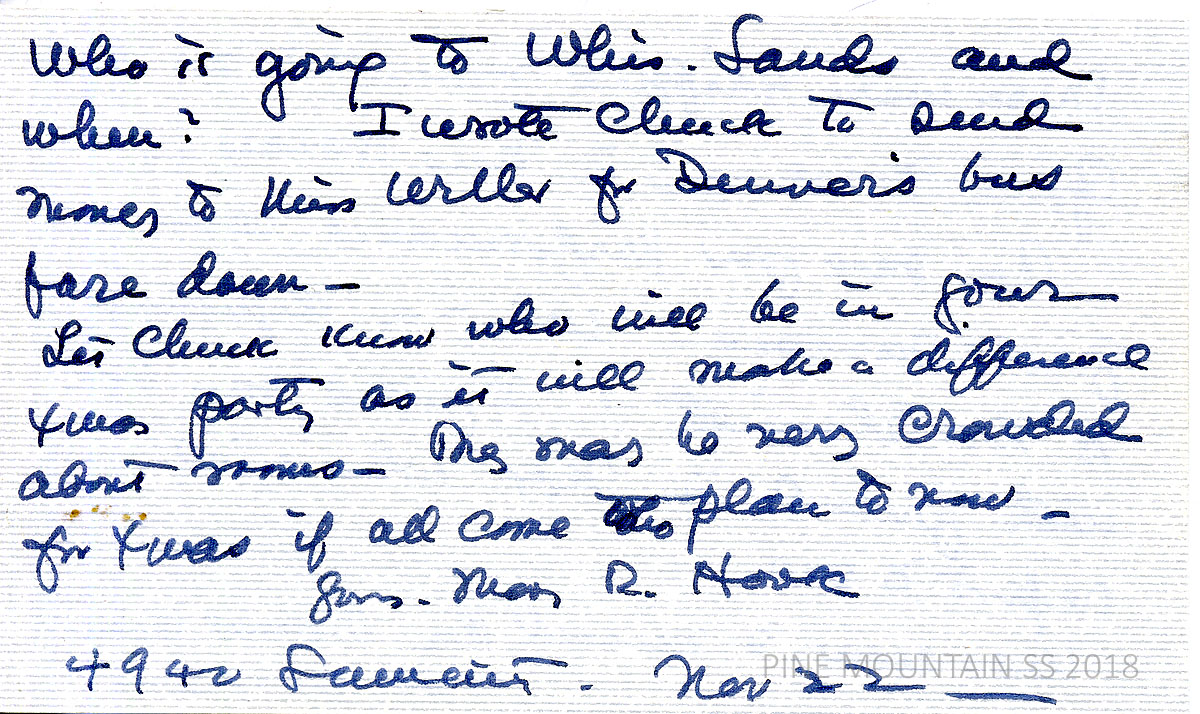 Who is going to Whis. Sands and
when? I wrote Chuck to send
money to Miss Weller for Denver's bus
fare down —
Let Chuck know who will be in your
Xmas party as it will make a difference
about rooms — They may be very crowded
for Xmas if all come who plan to now —
Yours. Mary R. Hook
4940 Summit. Nov 22
PINE MOUNTAIN SS 2018